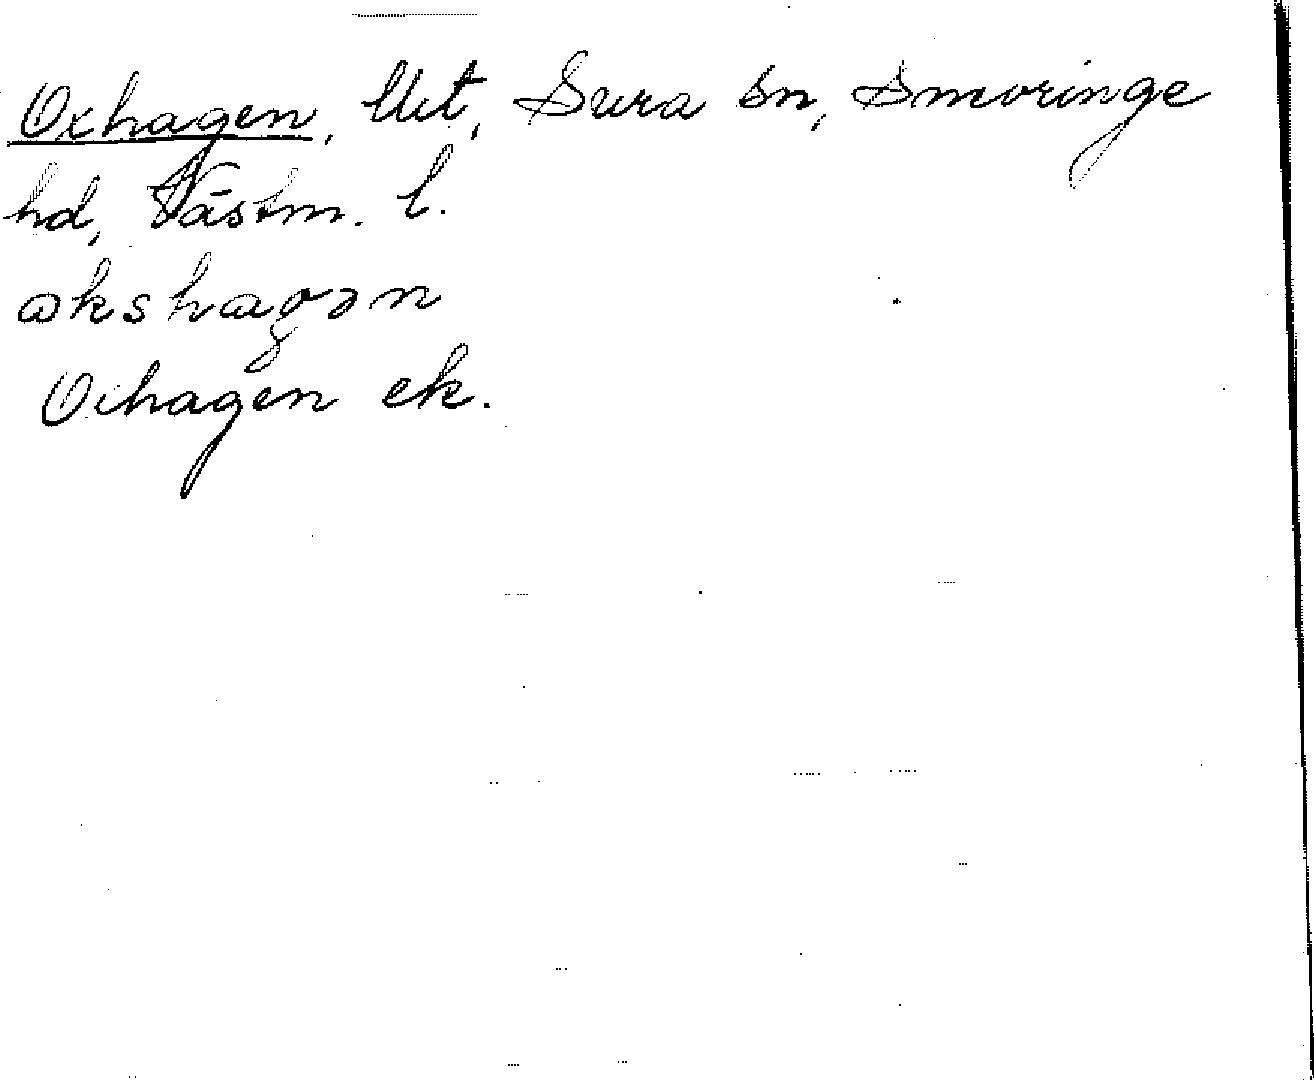 Oxhagen, Ut, Sura sn, Snevringe
hd, Västm. l.
Oxhagen ek.